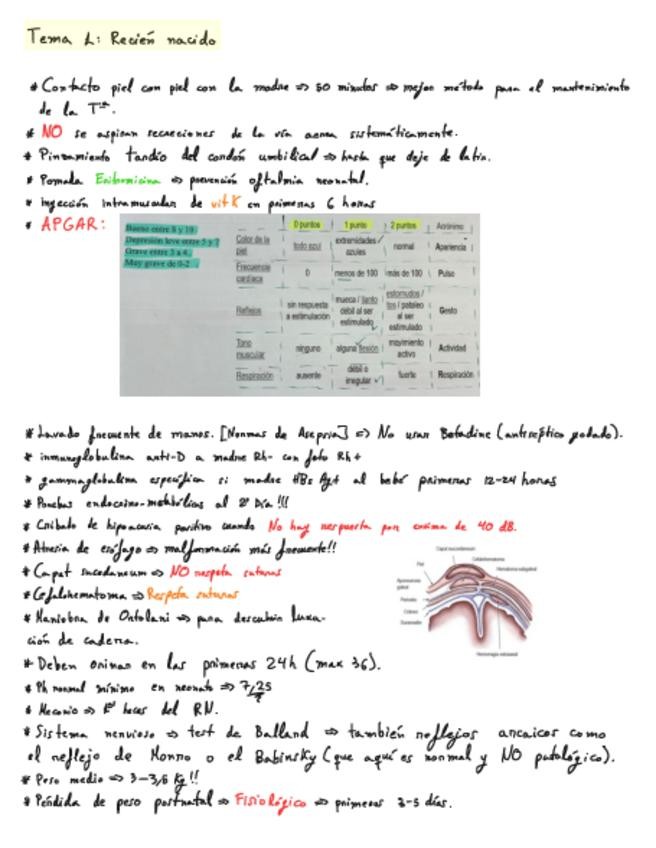 Tema 1: Recién nacido
* Contacto piel con piel con la madre => 50 minutos => mejor método para el mantenimiento
de la Tª.
* NO se aspiran secreciones de la vía aérea sistemáticamente.
* Pinzamiento tardío del cordón umbilical => hasta que deje de latir.
* Pomada Eritromicina => prevención oftalmia neonatal.
* Inyección intramuscular de vit K en primeras 6 horas
* APGAR:
Bueno entre 8 y 10
Depresión leve entre 5 y 7
Grave entre 3 a 4
Muy grave de 0-2
0 puntos 1 punto 2 puntos Acrónimo
Color de la piel todo azul extremidades azules normal Apariencia
Frecuencia cardíaca 0 menos de 100 más de 100 Pulso
Reflejos sin respuesta a estimulación mueca / llanto débil al ser estimulado estornudos / tos / pataleo al ser estimulado Gesto
Tono muscular ninguno alguna flexión movimiento activo Actividad
Respiración ausente débil o irregular fuerte Respiración
* Lavado frecuente de manos. [Normas de Asepsia] => No usar Betadine (antiséptico yodado).
* inmunoglobulina anti-D a madre Rh- con feto Rh+
* gammaglobulina específica si madre HBs Ag+ al bebé primeras 12-24 horas
* Pruebas endocrino-metabólicas al 2º Día !!!
* Cribado de hipoacusia positivo cuando No hay respuesta por encima de 40 dB.
* Atresia de esófago => malformación más frecuente!!
* Caput sucedaneum => NO respeta suturas
* Cefalohematoma => Respeta suturas
* Maniobra de Ortolani => para descubrir luxa-
ción de cadera.
Caput succedaneum
Cefalohematoma
Piel
Hematoma subgaleal
Aponeurosis
galeal
Periostio
Cráneo
Duramadre
Hemorragia extradural
* Deben orinar en las primeras 24h (max 36).
* Ph normal mínimo en neonato => 7,25
?
* Meconio => 1ª heces del RN.
* Sistema nervioso => test de Balland => también reflejos arcaicos como
el reflejo de Morro o el Babinsky (que aquí es normal y NO patológico).
* Peso medio => 3-3,6 Kg!!
* Pérdida de peso postnatal => Fisiológico => primeros 3-5 días.